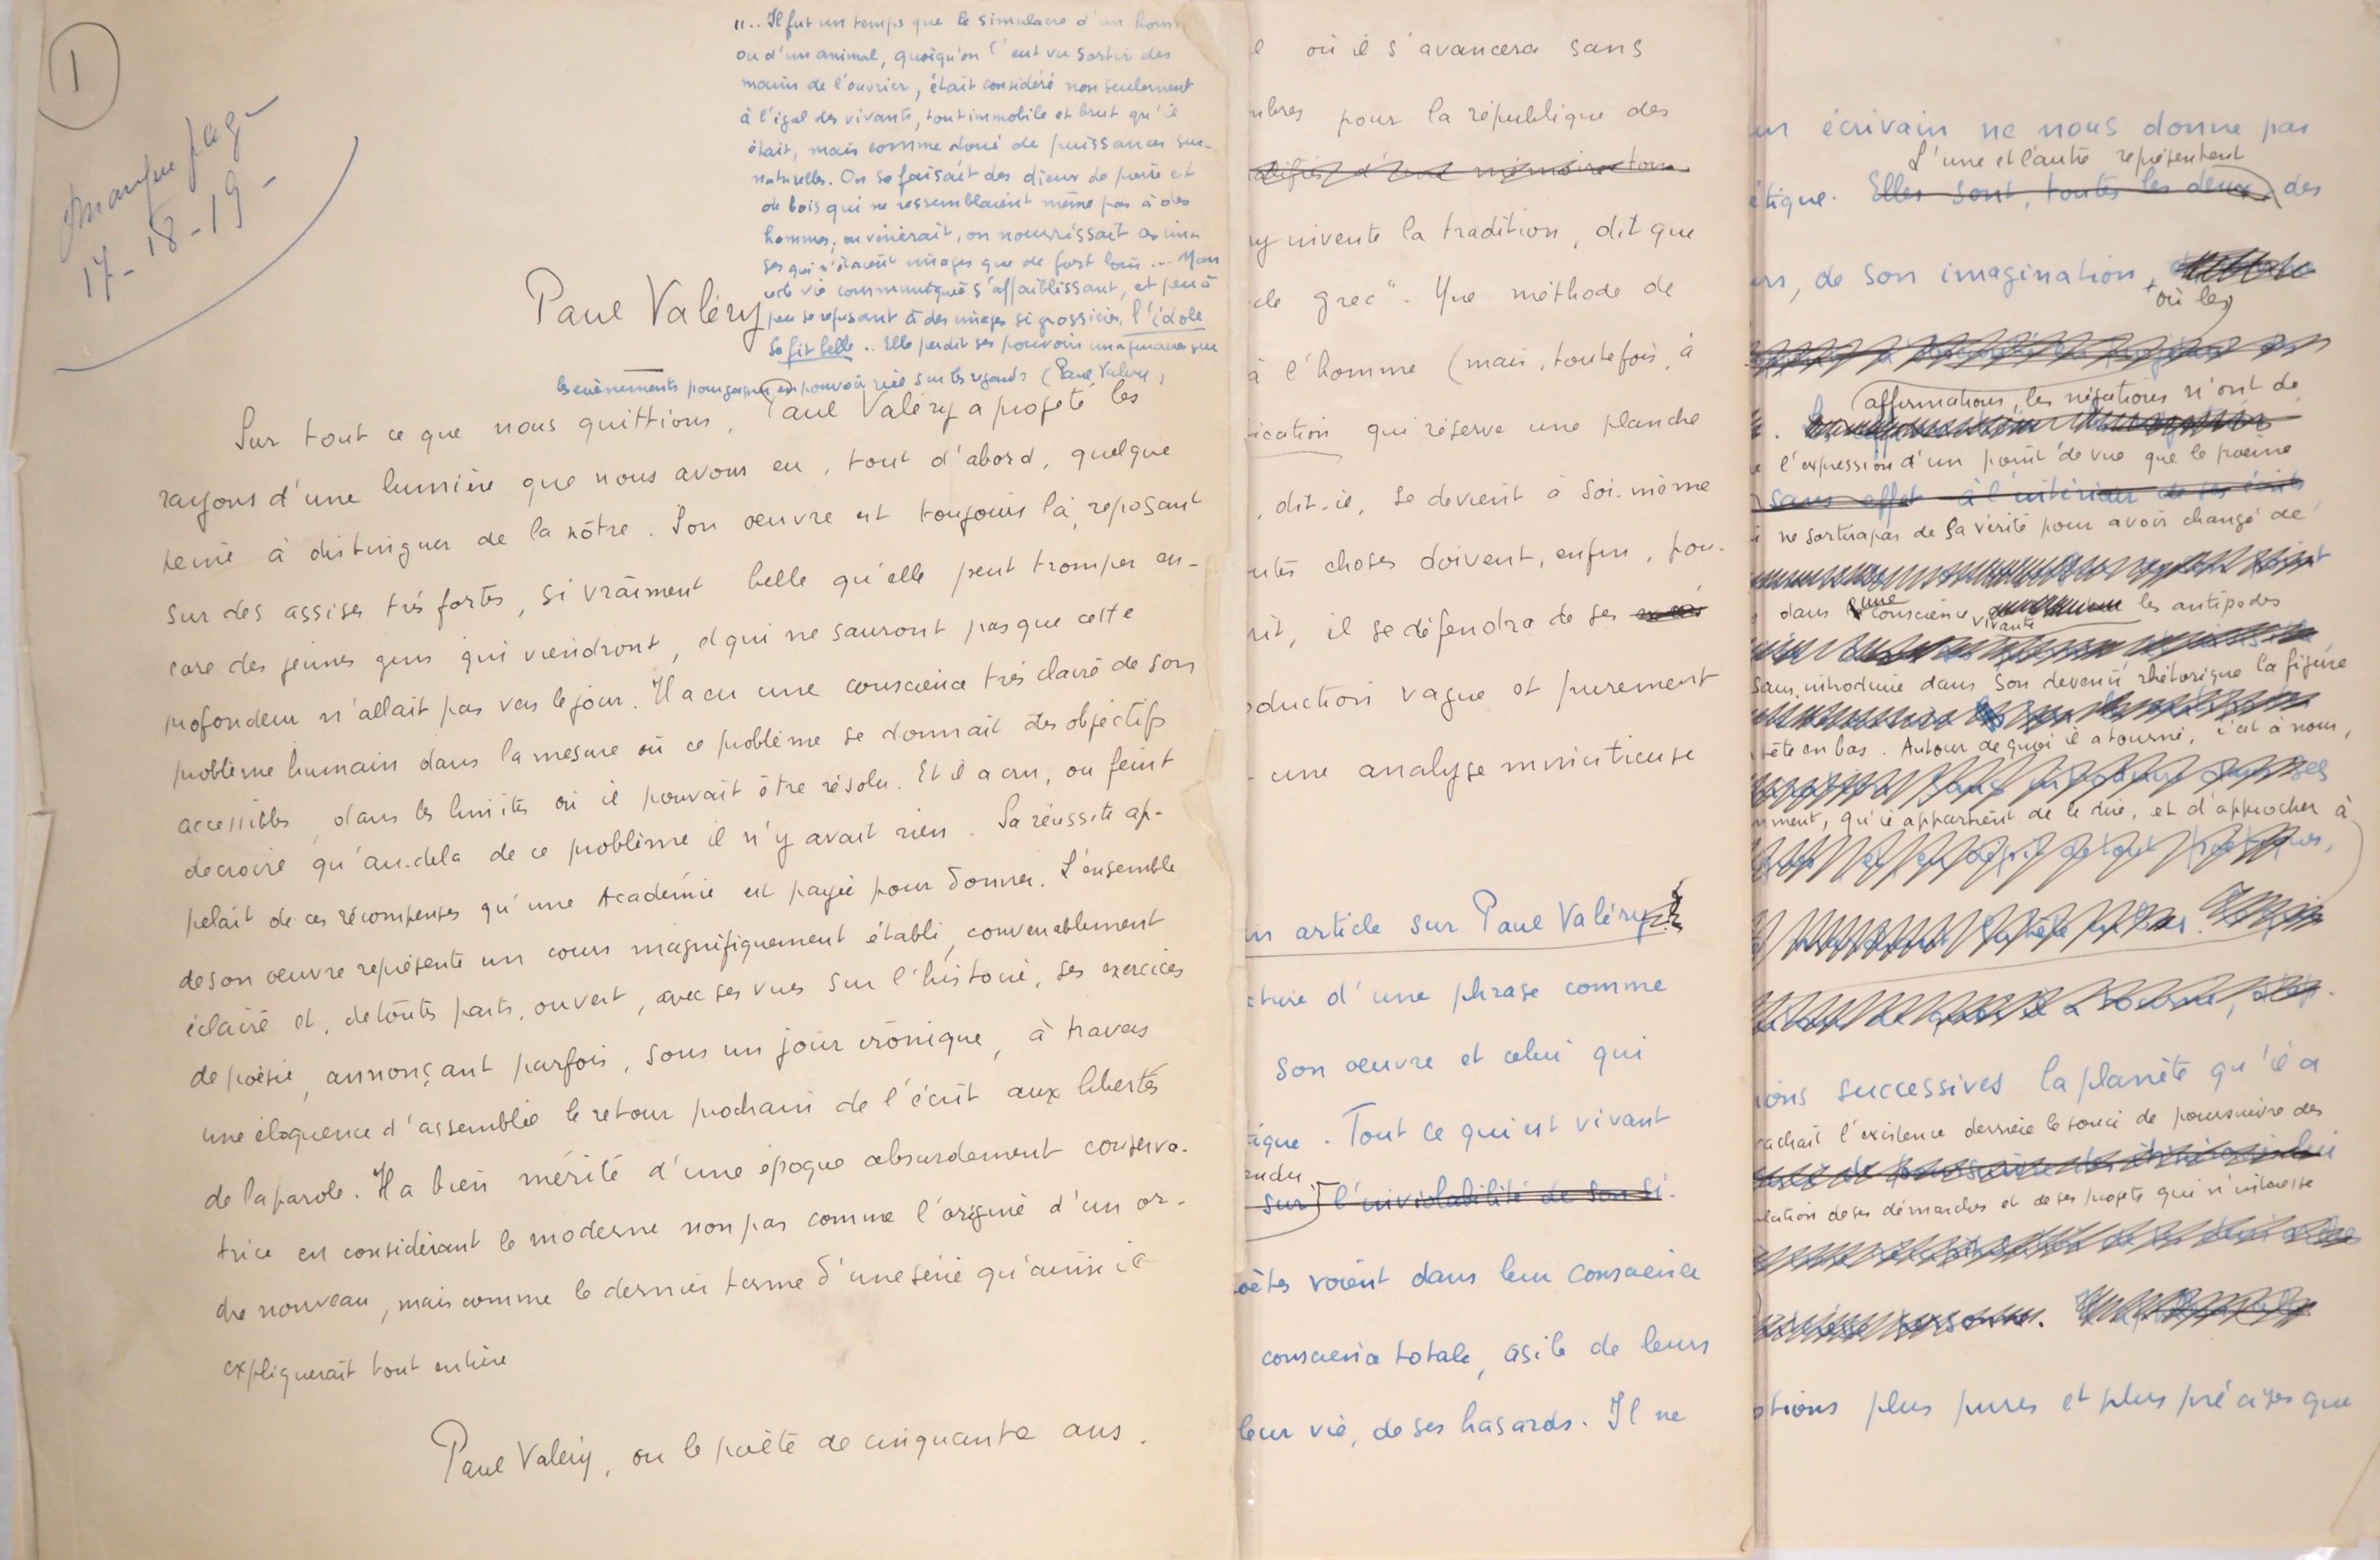 1
manque pag-
17-18-19-
"... Il fut un temps que le simulacre d'un homme
ou d'un animal, quoiqu'on l'eut vu sortir des
mains de l'ouvrier, était considéré non seulement
à l'égal des vivants, tout immobile et brut qu'il
était, mais comme doué de puissances sur-
naturelles. On se faisait des dieux de pierre et
de bois qui ne ressemblaient même pas à des
hommes; on vénérait, on nourrissait ces ima-
ges qui n'étaient images que de fort loin ... Mais
cette vie communiquée s'affaiblissant, et peu à
peu se refusant à des images si grossières, l'idole
se fit belle .. Elle perdit ses pouvoirs imaginaires sur
les évènements pour gagner en pouvoir réel sur les regards (Paul Valéry)
Paul Valéry
Sur tout ce que nous quittions, Paul Valéry a projeté les
rayons d'une lumière que nous avons eu, tout d'abord, quelque
peine à distinguer de la nôtre. Son oeuvre est toujours là, reposant
sur des assises très fortes, si vraiment belle qu'elle peut tromper en-
core des jeunes gens qui viendront, et qui ne sauront pas que cette
profondeur n'allait pas vers le jour. Il a eu une conscience très claire de son
problème humain dans la mesure où ce problème se donnait des objectifs
accessibles, dans les limites où il pouvait être résolu. Et il a cru, ou feint
de croire qu'au-dela de ce problème il n'y avait rien. Sa réussite ap-
pelait de ces récompenses qu'une Académie est payée pour donner. L'ensemble
de son oeuvre représente un cours magnifiquement établi, convenablement
éclairé et, de toutes parts, ouvert, avec ses vues sur l'histoire, ses exercices
de poésie, annonçant parfois, sous un jour ironique, à travers
une éloquence d'assemblée le retour prochain de l'écrit aux libertés
de la parole. Il a bien mérité d'une époque absurdement conserva-
trice en considérant le moderne non pas comme l'origine d'un or-
dre nouveau, mais comme le dernier terme d'une série qu'ainsi il
expliquerait tout entière
Paul Valéry, ou le poète de cinquante ans.
où il s'avancera sans
mbres pour la république des
mémoire
ry invente la tradition, dit que
cle grec". Une méthode de
à l'homme (mais, toutefois, à
ication qui réserve une planche
, dit-il, se devient à soi-même
utes choses doivent, enfin, pou-
rit, il se défendra de ses
oduction vague et purement
- une analyse minutieuse
un article sur Paul Valéry
cture d'une phrase comme
son oeuvre et celui qui
ique. Tout ce qui est vivant
endu
sur l'inviolabilité de son si-
oètes voient dans leur conscience
conscience totale, asile de leurs
leur vie, de ses hasards. Il ne
un écrivain ne nous donne pas
L'une et l'autre représentent
étique. Elles sont, toutes les deux, des
rs, de son imagination,
où les
affirmations, les négations n'ont de
l'expression d'un point de vue que le poème
sans effet à l'intérieur de ses écrits
ne sortira pas de sa vérité pour avoir changé de
dans une conscience vivante les antipodes
sans introduire dans son devenir rhétorique la figure
tête en bas. Autour de quoi il a tourné, c'est à nous,
mment, qu'il appartient de le dire, et d'approcher à
ions successives la planète qu'il a
cachait l'existence derrière le souci de poursuivre des
lation de ses démarches et de ses projets qui n'intéresse
personne.
ptions plus pures et plus précises que